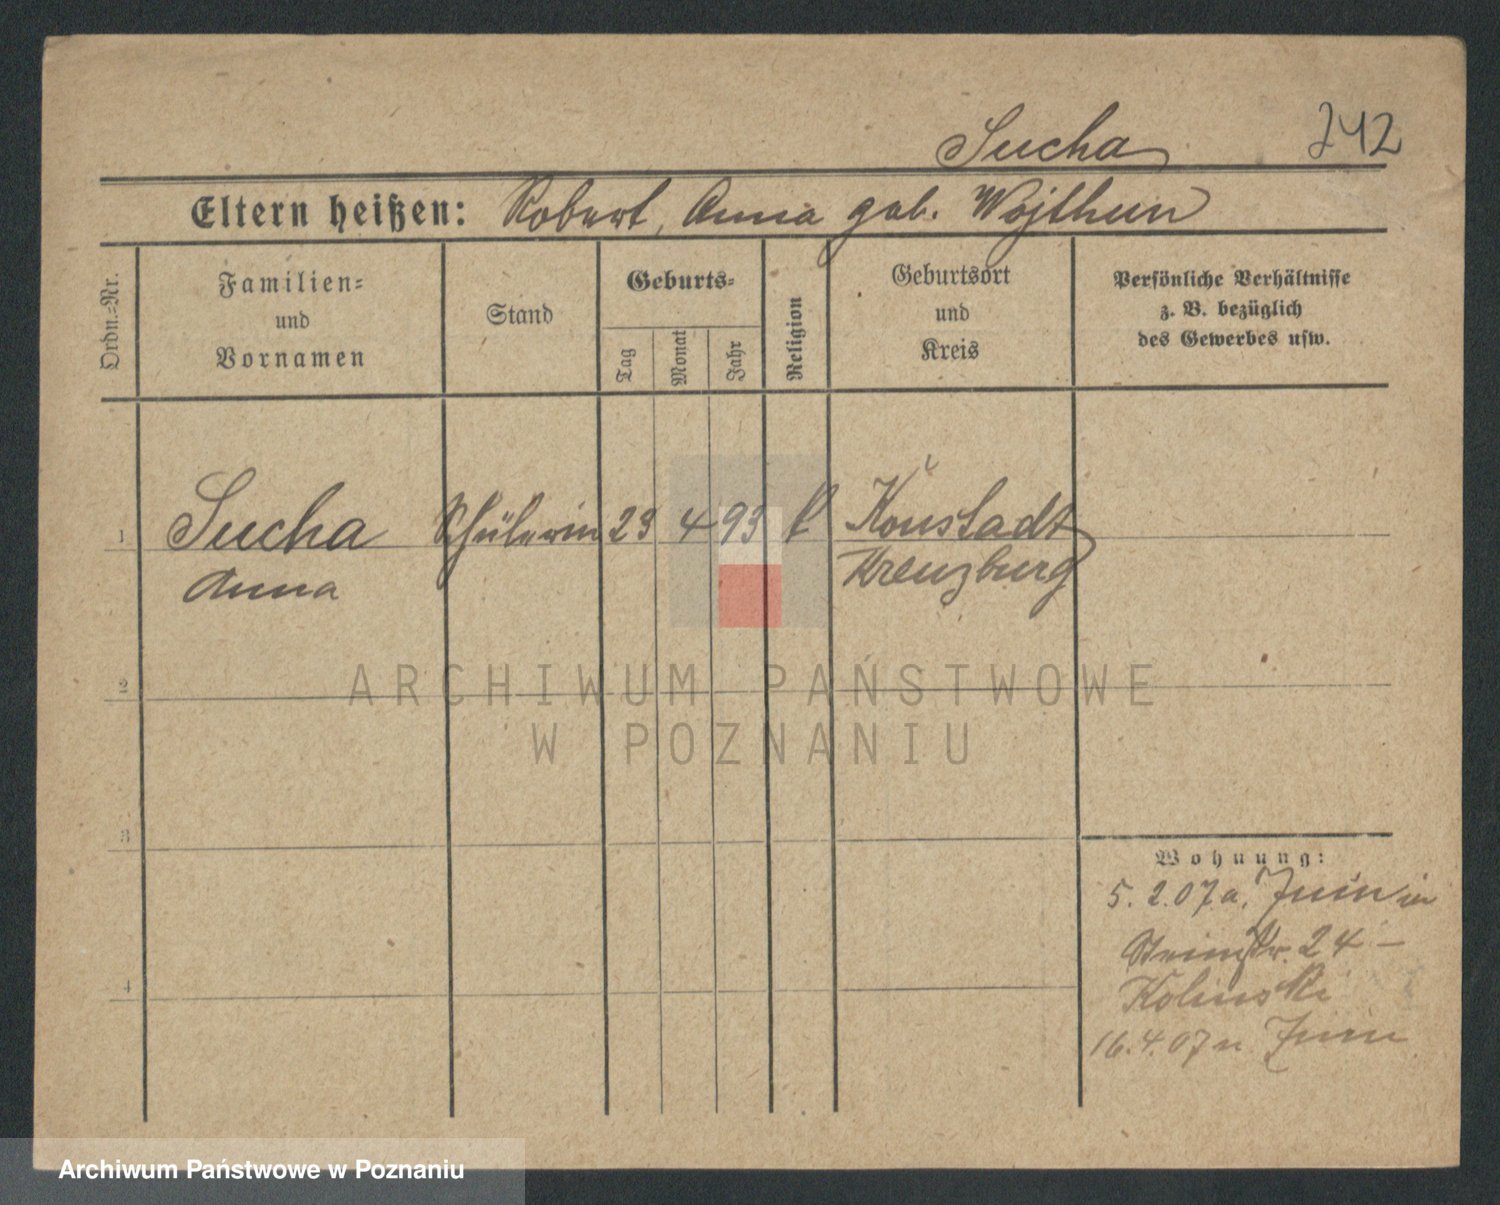 Sucha 242
Eltern heißen: Robert, Anna geb. Wojthun
Ordn.-Nr.
Familien-
und
Vornamen
Stand
Geburts-
Tag
Monat
Jahr
Religion
Geburtsort
und
Kreis
Persönliche Verhältnisse
z. B. bezüglich
des Gewerbes usw.
1 Sucha Schülerin 23 4 93 k Konstadt
Anna Kreuzburg
2
3
4
Wohnung:
5. 2. 07 a.
24 –
Kolinski
16. 4. 07 n.
ARCHIWUM PAŃSTWOWE
W POZNANIU
Archiwum Państwowe w Poznaniu